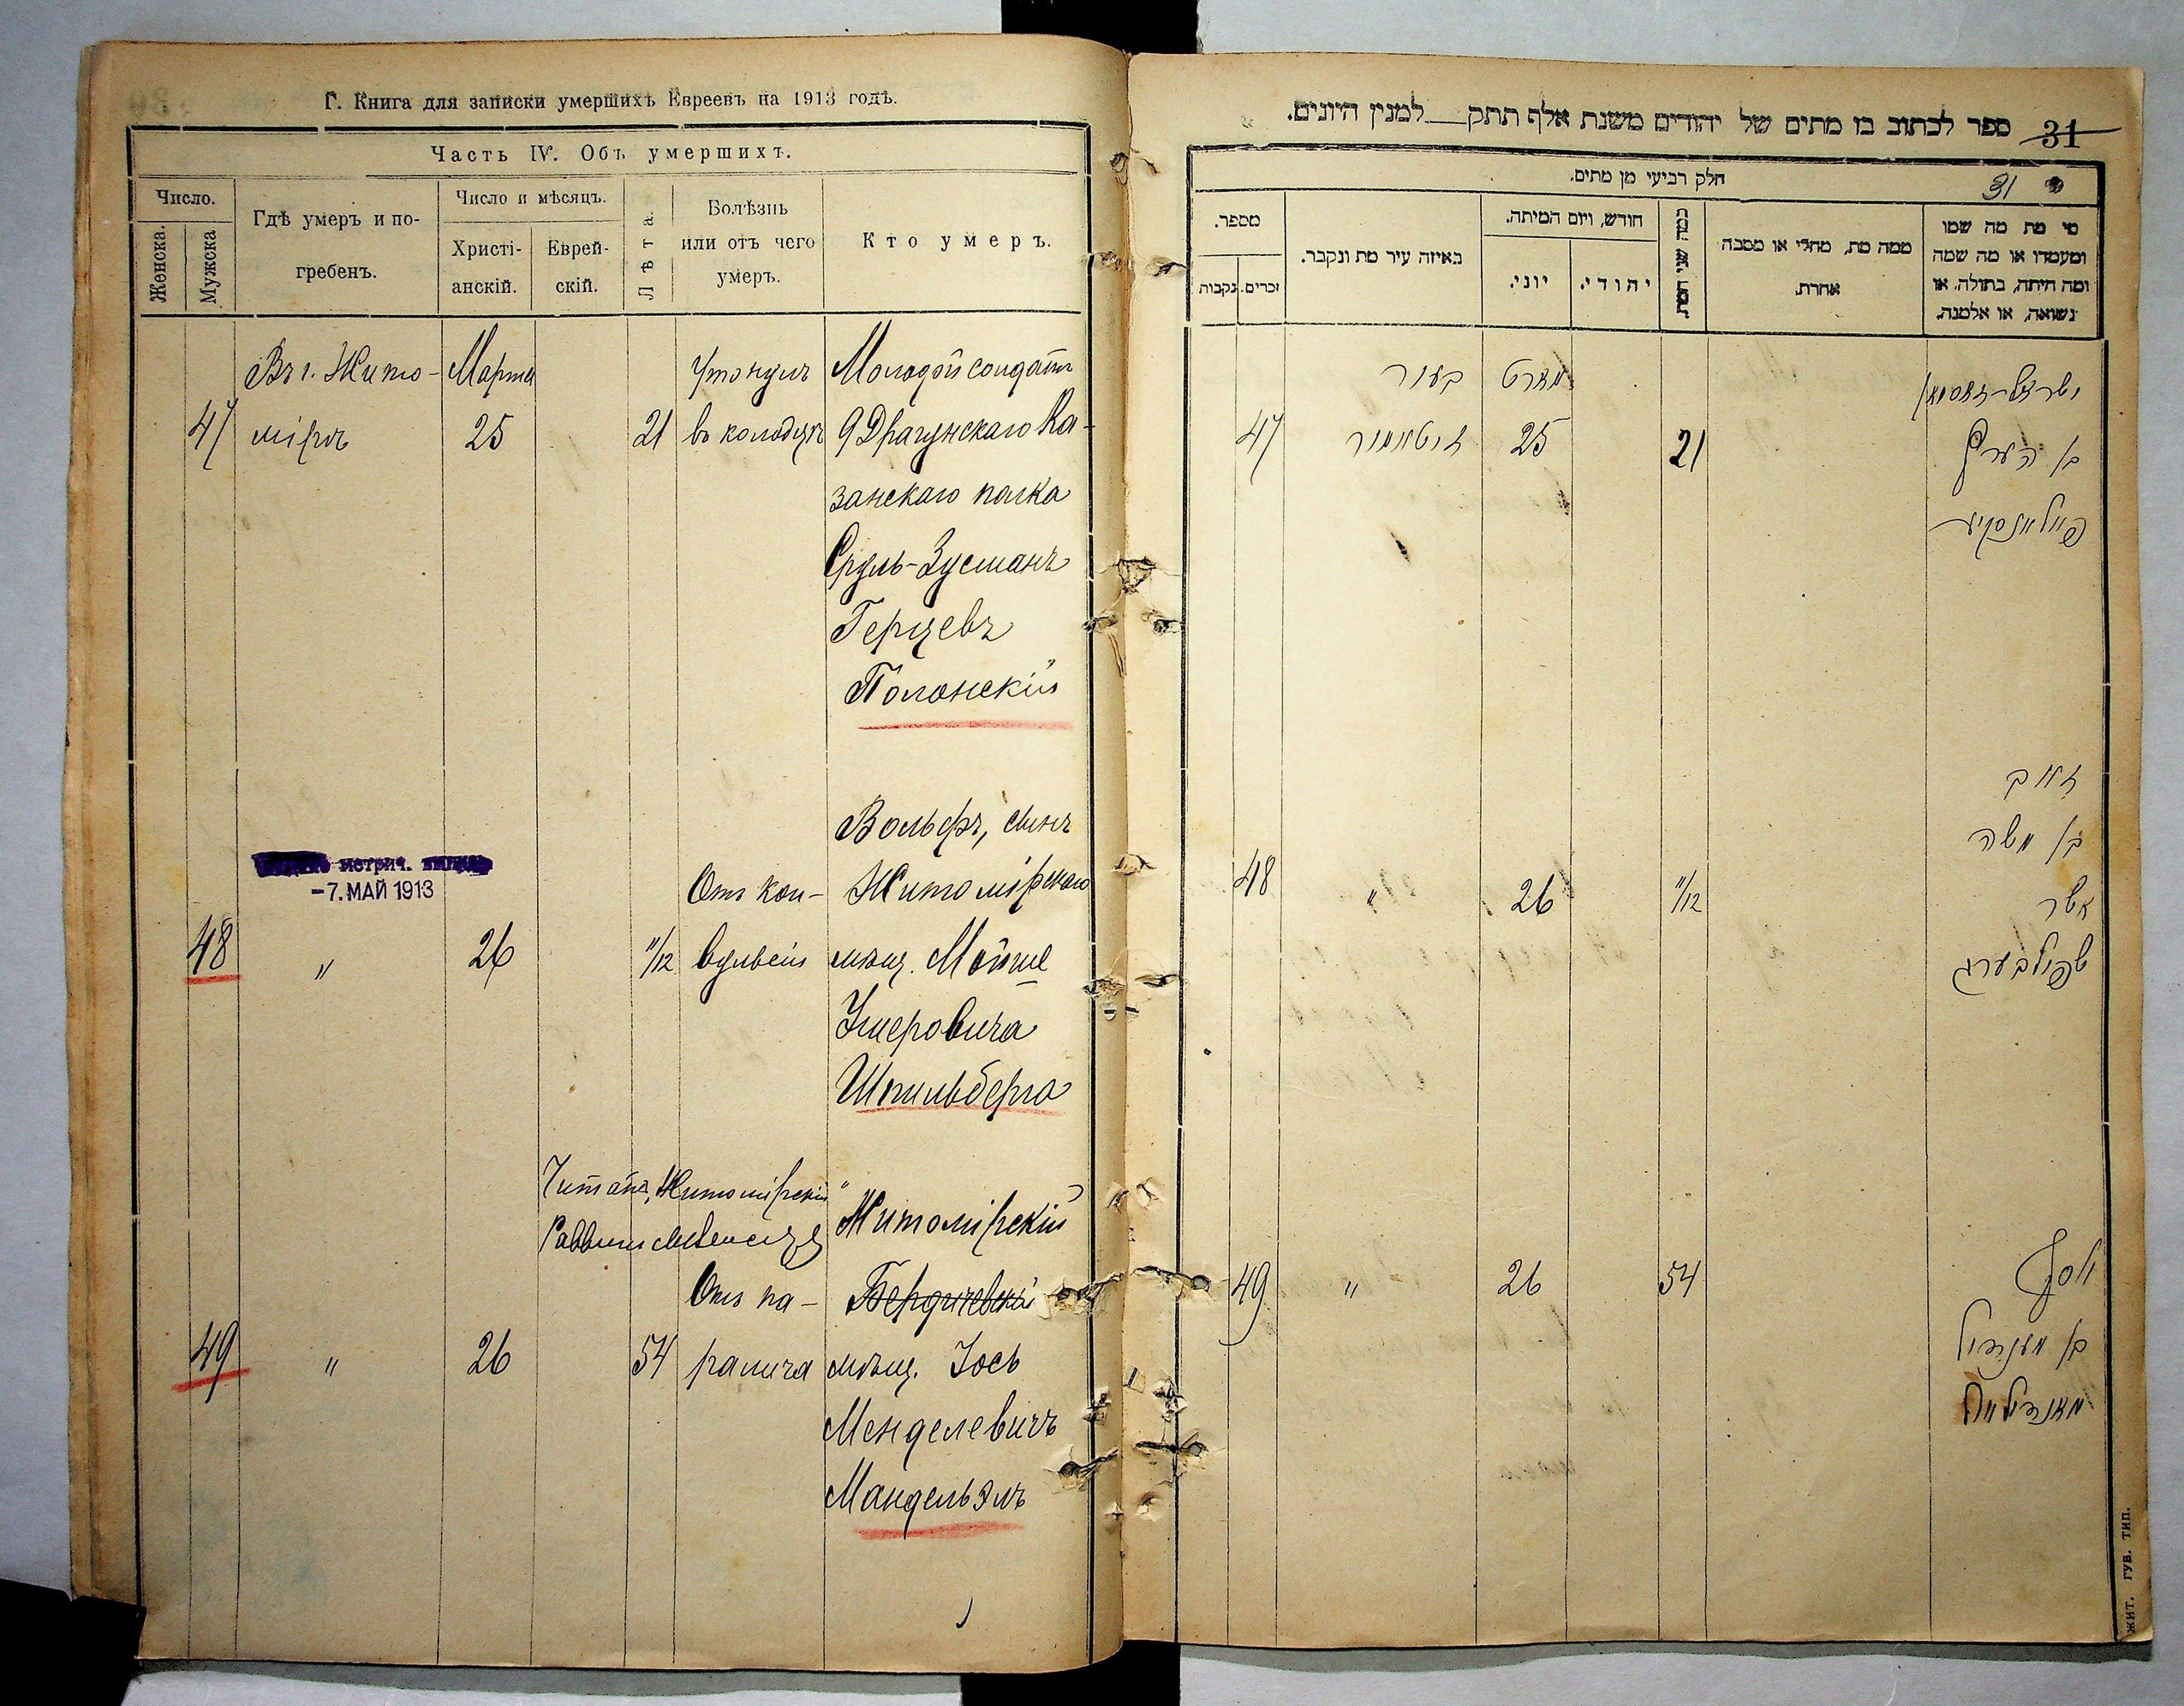 Г. Книга для записки умершихъ Евреевъ на 1913 годъ.
Часть IV. Объ умершихъ.
Число.
Женска.
Мужска
Гдѣ умеръ и по-
гребенъ.
Число и мѣсяцъ.
Христі-
анскій.
Еврей-
скій.
Лѣта.
Болѣзнь
или отъ чего
умеръ.
Кто умеръ.
Въ г. Жито- Марта Утонулъ Молодой солдатъ
47 мірѣ 25 21 въ колодцѣ 9 Драгунскаго Ка-
занскаго полка
Сруль-Зусманъ
Герцевъ
Полонскій
Вольфъ, сынъ
метрич.
-7. МАЙ 1913
Отъ кон- Житомірскаго
48 " 26 11/12 вульсій мѣщ. Мойше
Ушеровича
Шпильберга
Читать, "Житомірскій"
Раввинъ
Житомірскій
Отъ па- Бердичевскій
49 " 26 54 ралича мѣщ. Іось
Менделевичъ
Мандельэйль
ספר לכתוב בו מתים של יהודים משנת אלף תתק__למנין היונים.
31
חלק רביעי מן מתים.
31
מספר.
זכרים.
נקבות
באיזה עיר מת ונקבר.
חודש, ויום המיתה.
יוני.
יהודי.
כמה שני המת.
ממה מת, מחלי או מסבה
אחרת.
מי מת מה שמו
ומעמדו או מה שמה
ומה היתה, בתולה. או
נשואה, או אלמנה.
בעיר מארט ישראל-זוסמאן
47 זיטאמיר 25 21 בן הערץ
פולאנסקיי
זאב
בן משה
48 " 26 11/12 אשר
שפילבערג
49 " 26 54 יוסף
בן מענדיל
מאנדילייל
ЖИТ. ГУБ. ТИП.